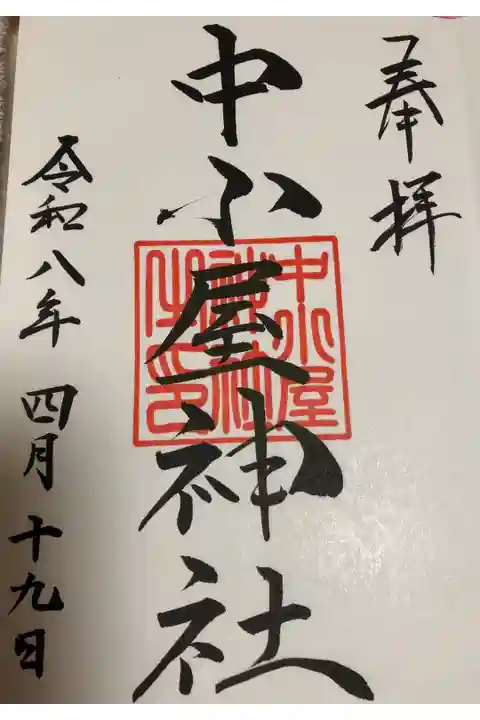 奉拝
中小屋神社
中小屋
神社
之印
令和八年 四月 十九日